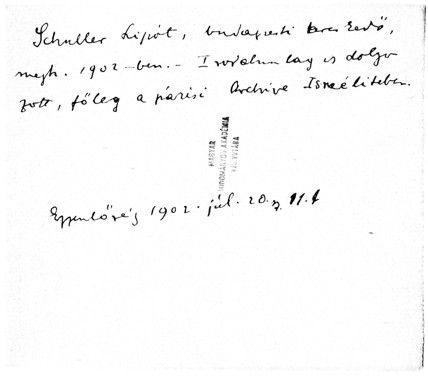 Schuller Lipót, budapesti kereskedő,
megh. 1902-ben. - Irodalmilag is dolgo
zott, főleg a párisi Archive Israéliteben.
MAGYAR
TUDOMÁNYOS AKADÉMIA
KÖNYVTÁRA
Egyenlőség 1902. júl. 20. 11. l